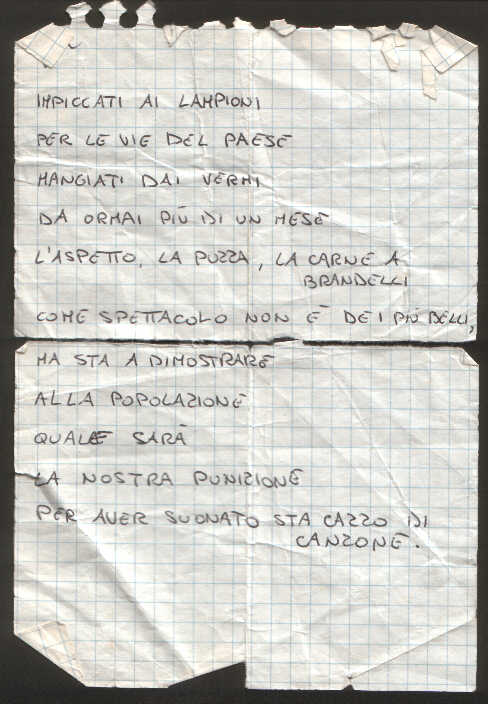 IMPICCATI AI LAMPIONI
PER LE VIE DEL PAESE
MANGIATI DAI VERMI
DA ORMAI PIÙ DI UN MESE
L'ASPETTO, LA PUZZA, LA CARNE A
BRANDELLI
COME SPETTACOLO NON È DEI PIÙ BELLI,
MA STA A DIMOSTRARE
ALLA POPOLAZIONE
QUALE SARÀ
LA NOSTRA PUNIZIONE
PER AVER SUONATO STA CAZZO DI
CANZONE.